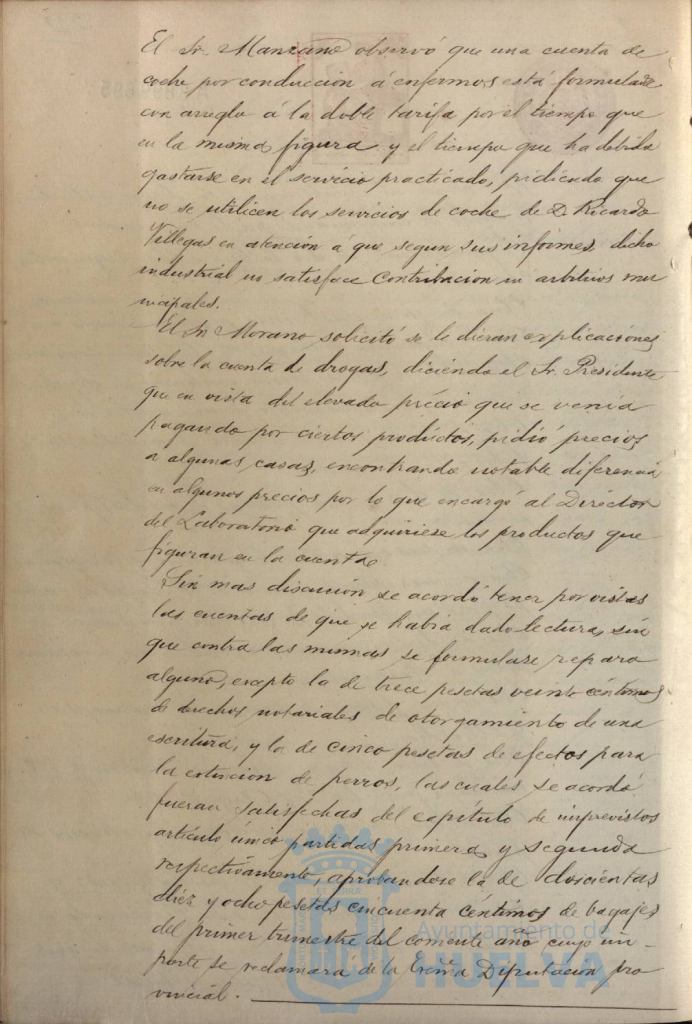 El Sr. Manzano observó que una cuenta de
coche por conduccion á enfermos está formulada
con arreglo á la doble tarifa por el tiempo que
en la misma figura y el tiempo que ha debido
gastarse en el servicio practicado, pidiendo que
no se utilicen los servicios de coche de D. Ricardo
Villegas en atención á que segun sus informes dicho
industrial no satisface contribucion ni arbitrios mu
nicipales.
El Sr. Morano, solicitó se le dieran explicaciones
sobre la cuenta de drogas, diciendo el Sr. Presidente
que en vista del elevado précio que se venia
pagando por ciertos productos, pidió precios
a algunas casas, encontrando notable diferencia
en algunos precios por lo que encargó al Director
del Laboratorio que adquiriese los productos que
figuran en la cuenta
Sin mas discusión se acordó tener por vistas
las cuentas de que se habia dado lectura, sin
que contra las mismas se formulase reparo
alguno, excepto la de trece pesetas veinte céntimos
de derechos notariales de otorgamiento de una
escritura, y la de cinco pesetas de efectos para
la extincion de perros, las cuales se acordó
fueran satisfechas del capítulo de imprevistos
artículo único partidas primera y segunda
respectivamente, aprobandose la de doscientas
diez y ocho pesetas cincuenta céntimos de bagajes
del primer trimestre del corriente año cuyo im-
porte se reclamara de la Excma Diputacion pro
vincial.
Ayuntamiento de
HUELVA